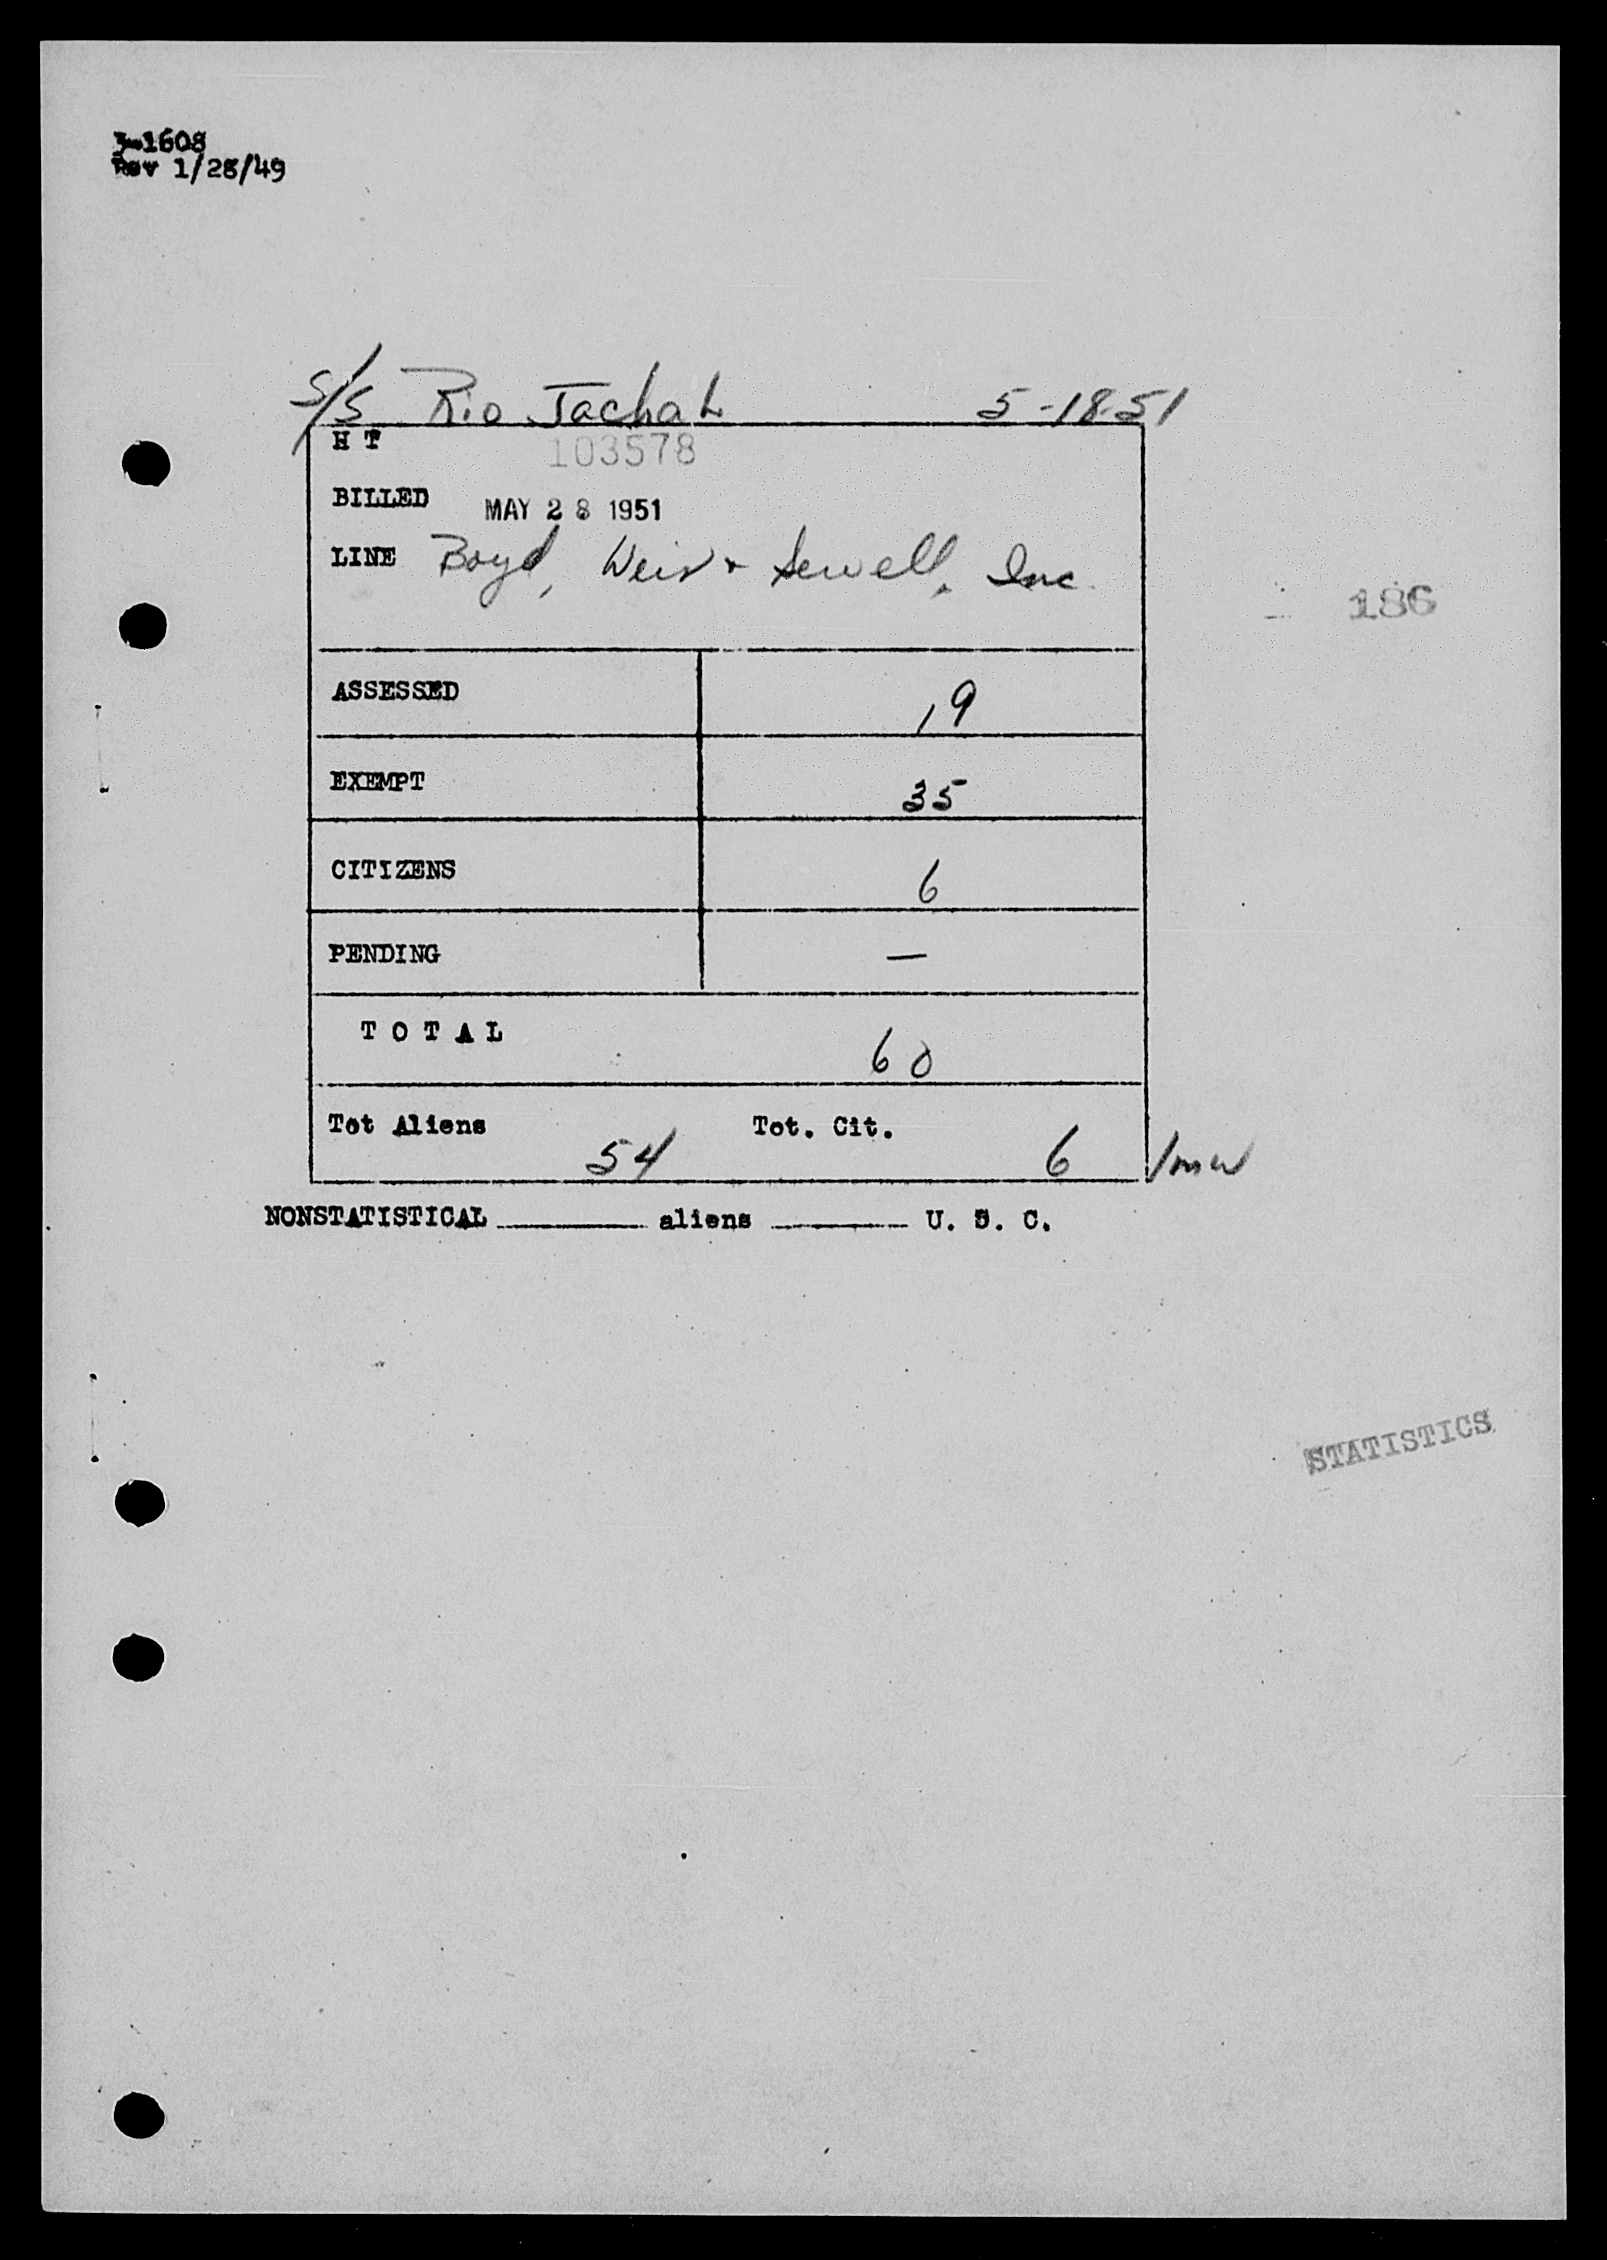 3-1608
Rev 1/28/49
S/S Rio Jachal 5-18-51
H T 103578
BILLED MAY 28 1951
LINE Boyd, Weir & Sewell, Inc.
186
ASSESSED 19
EXEMPT 35
CITIZENS 6
PENDING —
T O T A L 60
Tot Aliens 54 Tot. Cit. 6
NONSTATISTICAL ______ aliens ______ U. S. C.
STATISTICS